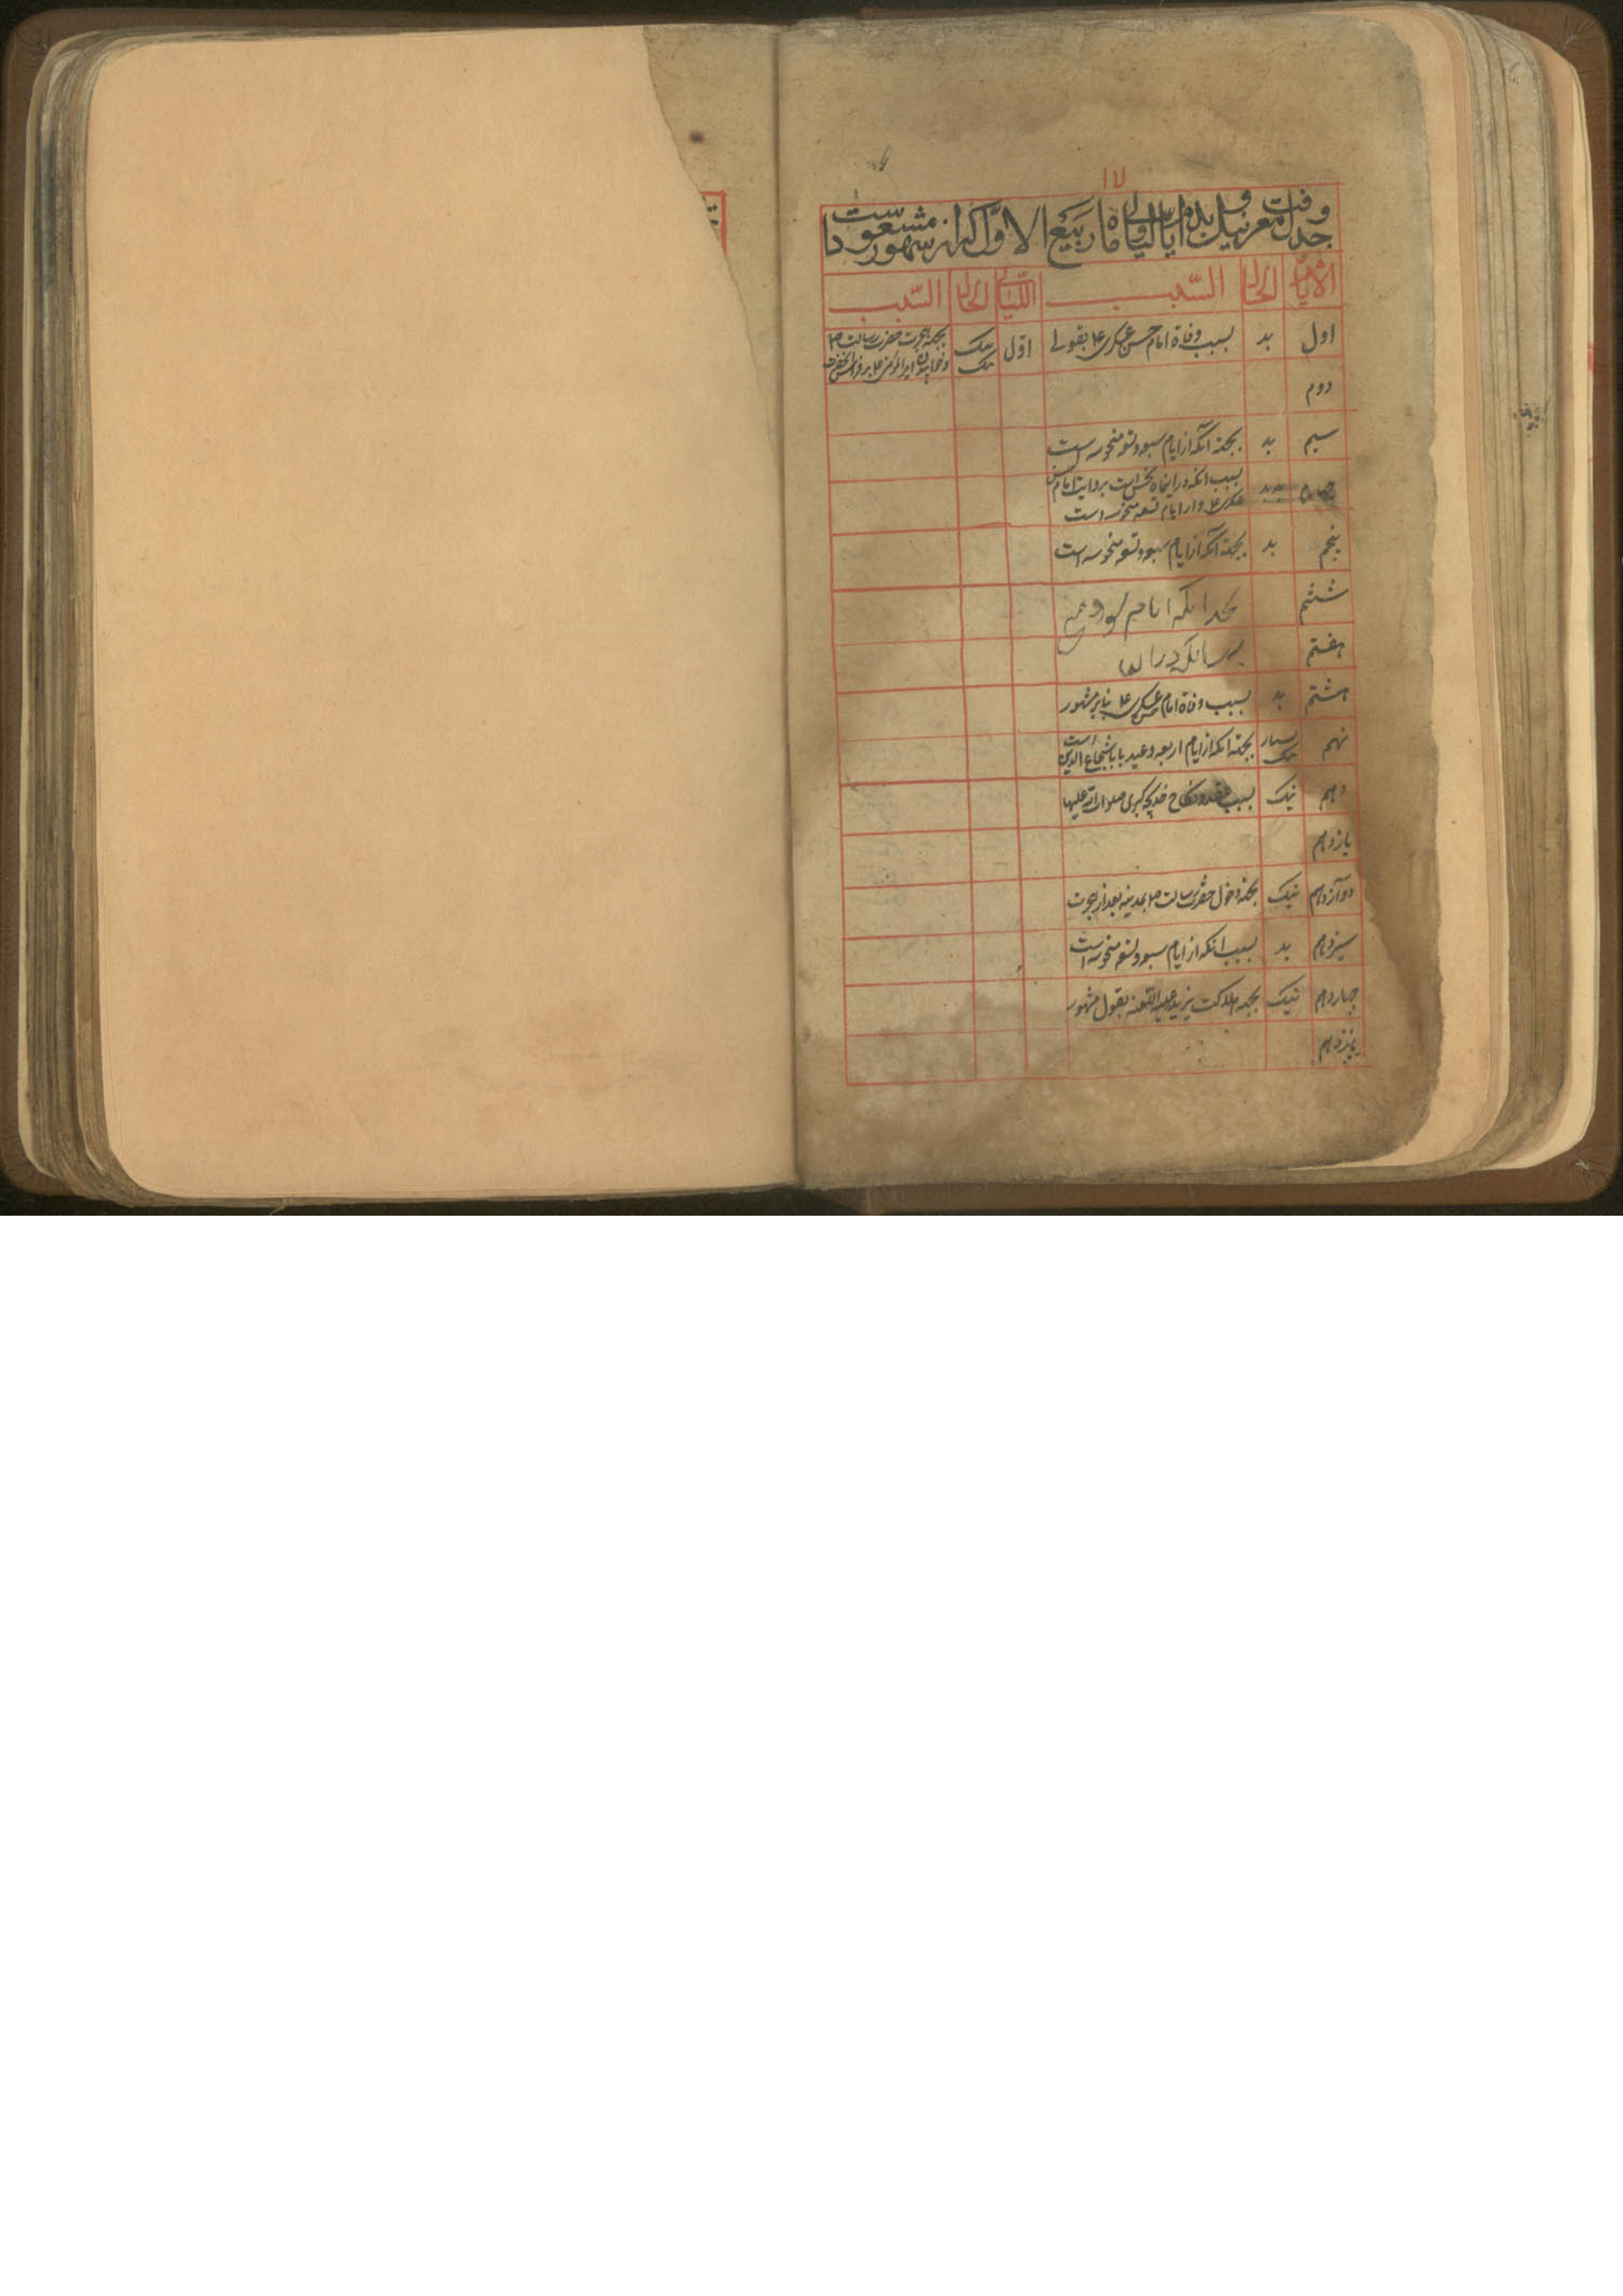 جدول معرفت نیک و بد ایام و لیالی ماه ربیع الاول که از شهور مسعود است
الایام الحال السبب اللیالی الحال السبب
اول بد بسبب وفاة امام حسن عسکری ع بقولی اول نیک بجهة هجرت حضرت رسالت ص
دوم
سیم بد بجهة آنکه از ایام سبعه و تسعه منحوسه است
بسبب آنکه در اینماه نحس است بروایت امام حسن
عسکری ع و از ایام تسعه منحوسه است
پنجم بد بجهة آنکه از ایام سبعه و تسعه منحوسه است
ششم
هفتم
هشتم بد بسبب وفاة امام حسن عسکری ع بنابر مشهور
نهم بسیار نیک بجهة آنکه از ایام اربعه و عید بابا شجاع الدین است
دهم نیک بسبب عقد و نکاح خدیجه کبری صلوات الله علیها
یازدهم
دوازدهم نیک بجهة دخول حضرت رسالت ص بمدینه بعد از هجرت
سیزدهم بد بسبب آنکه از ایام سبعه و تسعه منحوسه است
چهاردهم نیک بجهة هلاکت یزید علیه اللعنه بقول مشهور
پانزدهم